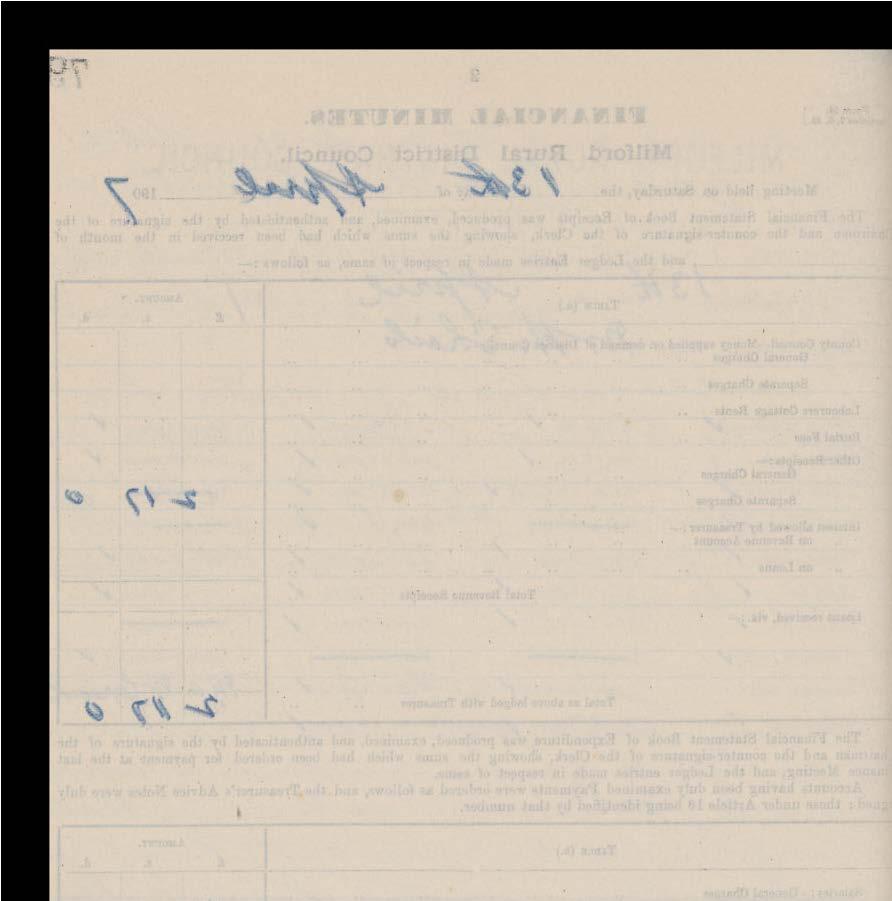 2
FINANCIAL MINUTES.
Milford Rural District Council.
Meeting held on Saturday, the 13th day of April 1907
The Financial Statement Book of Receipts was produced, examined, and authenticated by the signature of the
hairman and the counter-signature of the Clerk, showing the same which had been received in the month of
, and the Ledger Entries made in respect of same, as follows:—
TITLES (a.) AMOUNT.
£ s. d.
County Council—Money supplied on demand of District Council:—
General Charges
Separate Charges
Labourers Cottage Rents
Burial Fees
Other Receipts:—
General Charges
Separate Charges 2 17 0
Interest allowed by Treasurer:—
„ on Revenue Account
„ on Loans
Total Revenue Receipts
Loans received, viz.:—
Total as above lodged with Treasurer 2 17 0
The Financial Statement Book of Expenditure was produced, examined, and authenticated by the signature of the
hairman and the counter-signature of the Clerk, showing the same which had been ordered for payment at the last
inance Meeting, and the Ledger entries made in respect of same.
Accounts having been duly examined Payments were ordered as follows, and the Treasurer's Advice Notes were duly
igned; those under Article 16 being identified by that number.
TITLES (a.) AMOUNT.
£ s. d.
Salaries:—General Charges